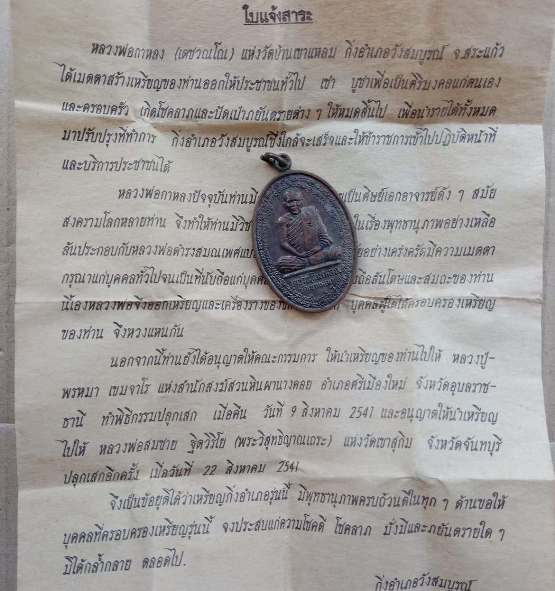 ใบแจ้งสาระ
หลวงพ่อกาหลง (เตชวณโณ) แห่งวัดบ้านเขาแหลม กิ่งอำเภอวังสมบูรณ์ จ.สระแก้ว
ได้เมตตาสร้างเหรียญของท่านออกให้ประชาชนทั่วไป เช่า บูชาเพื่อเป็นศิริมงคลแก่ตนเอง
และครอบครัว เกิดโชคลาภและปัดเป่าภยันตรายต่าง ๆ ให้หมดสิ้นไป เพื่อนำรายได้ทั้งหมด
มาปรับปรุงที่ทำการ กิ่งอำเภอวังสมบูรณ์ซึ่งใกล้จะเสร็จและให้ข้าราชการเข้าไปปฏิบัติหน้าที่
และบริการประชาชนได้
หลวงพ่อกาหลงปัจจุบันท่านมี เป็นศิษย์เอกอาจารย์ดัง ๆ สมัย
สงครามโลกหลายท่าน จึงทำให้ท่านมีวิช ในเรื่องพุทธานุภาพอย่างเหลือ
ล้นประกอบกับหลวงพ่อดำรงสมณเพศแบ อย่างเคร่งครัดมีความเมตตา
กรุณาแก่บุคคลทั่วไปจนเป็นที่นับถือแก่บุคค ถือสันโดษและสมถะของท่าน
นี้เองหลวงพ่อจึงออกเหรียญและเครื่องรางของ บุคคลผู้ใดได้ครอบครองเหรียญ
ของท่าน จึงหวงแหนกัน
นอกจากนี้ท่านยังได้อนุญาตให้คณะกรรมการ ให้นำเหรียญของท่านไปให้ หลวงปู่-
พรหมา เขมจาโร แห่งสำนักสงฆ์สวนหินผานางคอย อำเภอศรีเมืองใหม่ จังหวัดอุบลราช-
ธานี ทำพิธีกรรมปลุกเสก เมื่อคืน วันที่ 9 สิงหาคม 2541 และอนุญาตให้นำเหรียญ
ไปให้ หลวงพ่อสมชาย ฐิตวิริโย (พระวิสุทธิญาณเถระ) แห่งวัดเขาสุกิม จังหวัดจันทบุรี
ปลุกเสกอีกครั้ง เมื่อวันที่ 22 สิงหาคม 2541
จึงเป็นข้อยุติได้ว่าเหรียญกิ่งอำเภอรุ่นนี้ มีพุทธานุภาพครบถ้วนดีในทุก ๆ ด้านขอให้
บุคคลที่ครอบครองเหรียญรุ่นนี้ จงประสบแก่ความโชคดี โชคลาภ มั่งมีและภยันตรายใด ๆ
มิได้กล้ำกลาย ตลอดไป.
กิ่งอำเภอวังสมบูรณ์